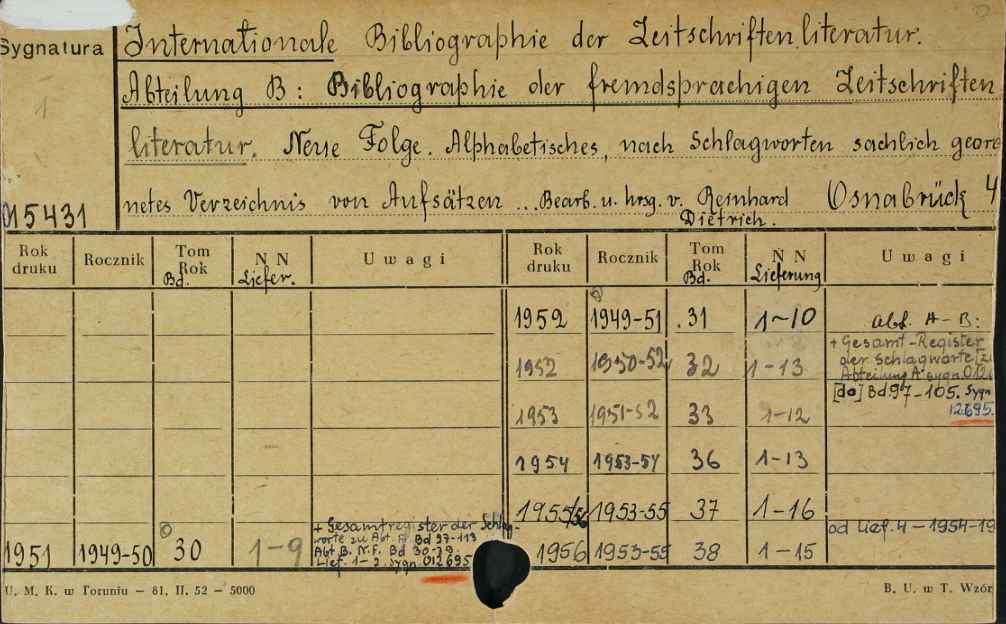 Sygnatura
Internationale Bibliographie der Zeitschriften literatur.
Abteilung B: Bibliographie der fremdsprachigen Zeitschriften
literatur. Neue Folge. Alphabetisches, nach Schlagworten sachlich geord
netes Verzeichnis von Aufsätzen ... Bearb. u. hrsg. v. Reinhard Osnabrück 4
Dietrich.
1
015431
Rok druku Rocznik Tom Rok Bd. N N Liefer. Uwagi
Rok druku Rocznik Tom Rok Bd. N N Lieferung Uwagi
1952 1949-51 31 1-10 Abt. A-B:
+ Gesamt-Register
der Schlagwörte [zu
Abteilung A sygn.
1952 1950-52 32 1-13
[do] Bd. 97-105. Sygn
12695.
1953 1951-52 33 1-12
1954 1953-54 36 1-13
1955/56 1953-55 37 1-16
od Lief. 4 - 1954-19
1956 1953-55 38 1-15
1951 1949-50 30 1-9
+ Gesamtregister der Schlag-
worte zu Abt. A Bd 97-113
Abt B. N.F. Bd 30-39.
Lief. 1- sygn. 012695
U. M. K. w Toruniu – 81. II. 52 – 5000
B. U. w T. Wzór